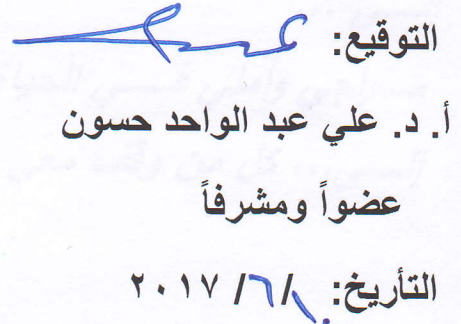 التوقيع:
أ. د. علي عبد الواحد حسون
عضواً ومشرفاً
التأريخ: / ٦ / ٢٠١٧